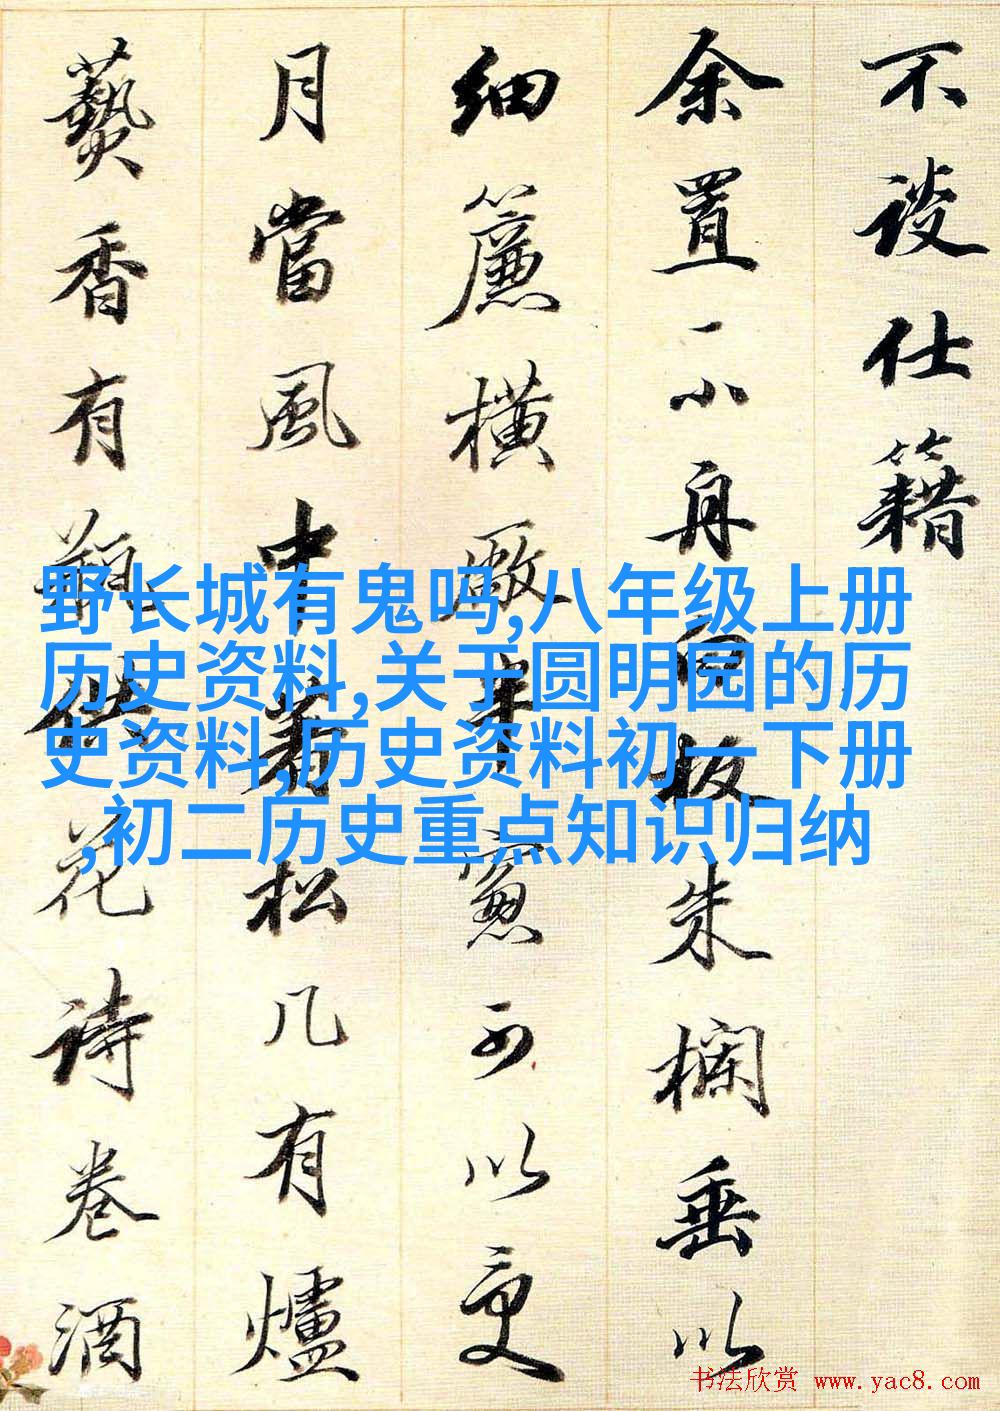 不談仕籍
余置一小舟白板朱欄垂以
細簾橫厰半窻可以受
月當風中着松几有爐
爇香有瓶供花詩卷酒
野长城有鬼吗,八年级上册
历史资料,关于圆明园的历
史资料,历史资料初一下册
,初二历史重点知识归纳
书法欣赏 www.yac8.com